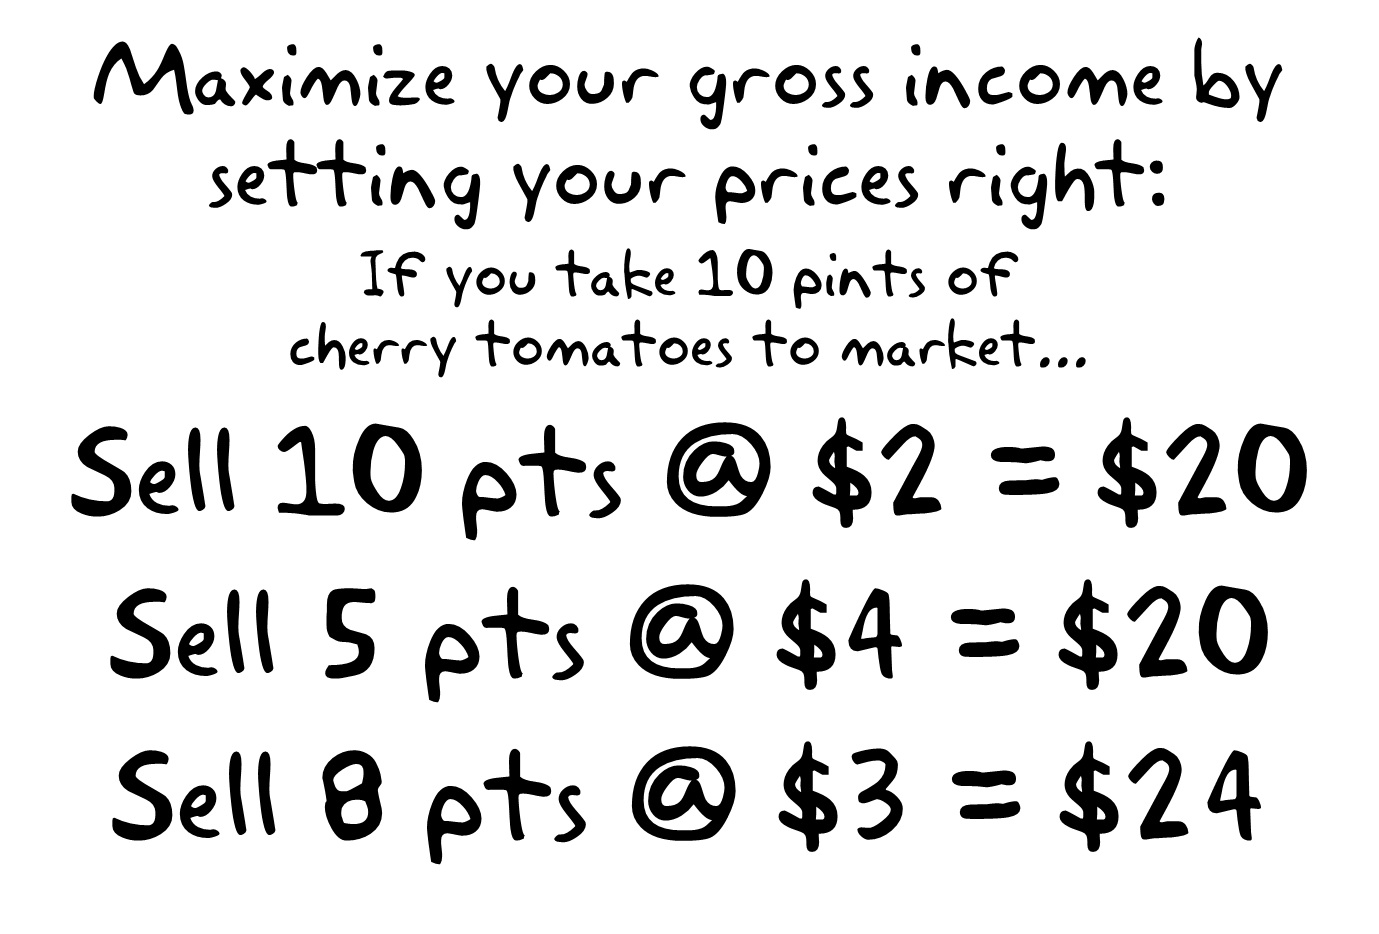 Maximize your gross income by
setting your prices right:
If you take 10 pints of
cherry tomatoes to market...
Sell 10 pts @ $2 = $20
Sell 5 pts @ $4 = $20
Sell 8 pts @ $3 = $24